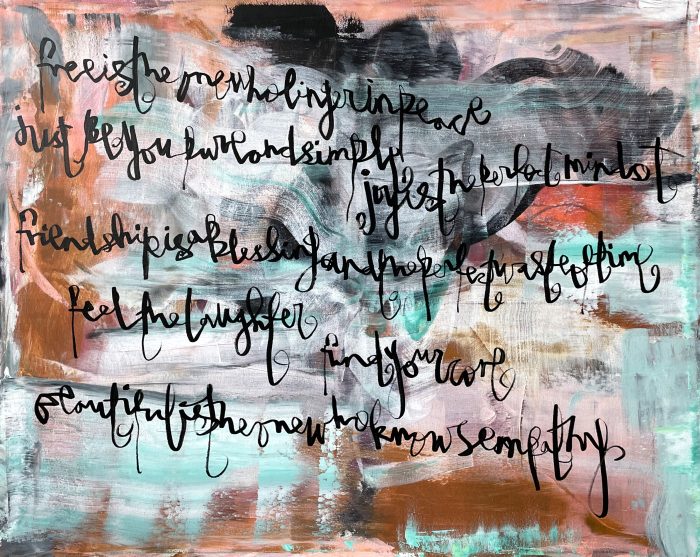 free is the one who lingers in peace
just be you pure and simply
joy is the perfect mindset
friendship is a blessing and the perfect waste of time
feel the laughter
find your core
beautiful is the one who knows empathy